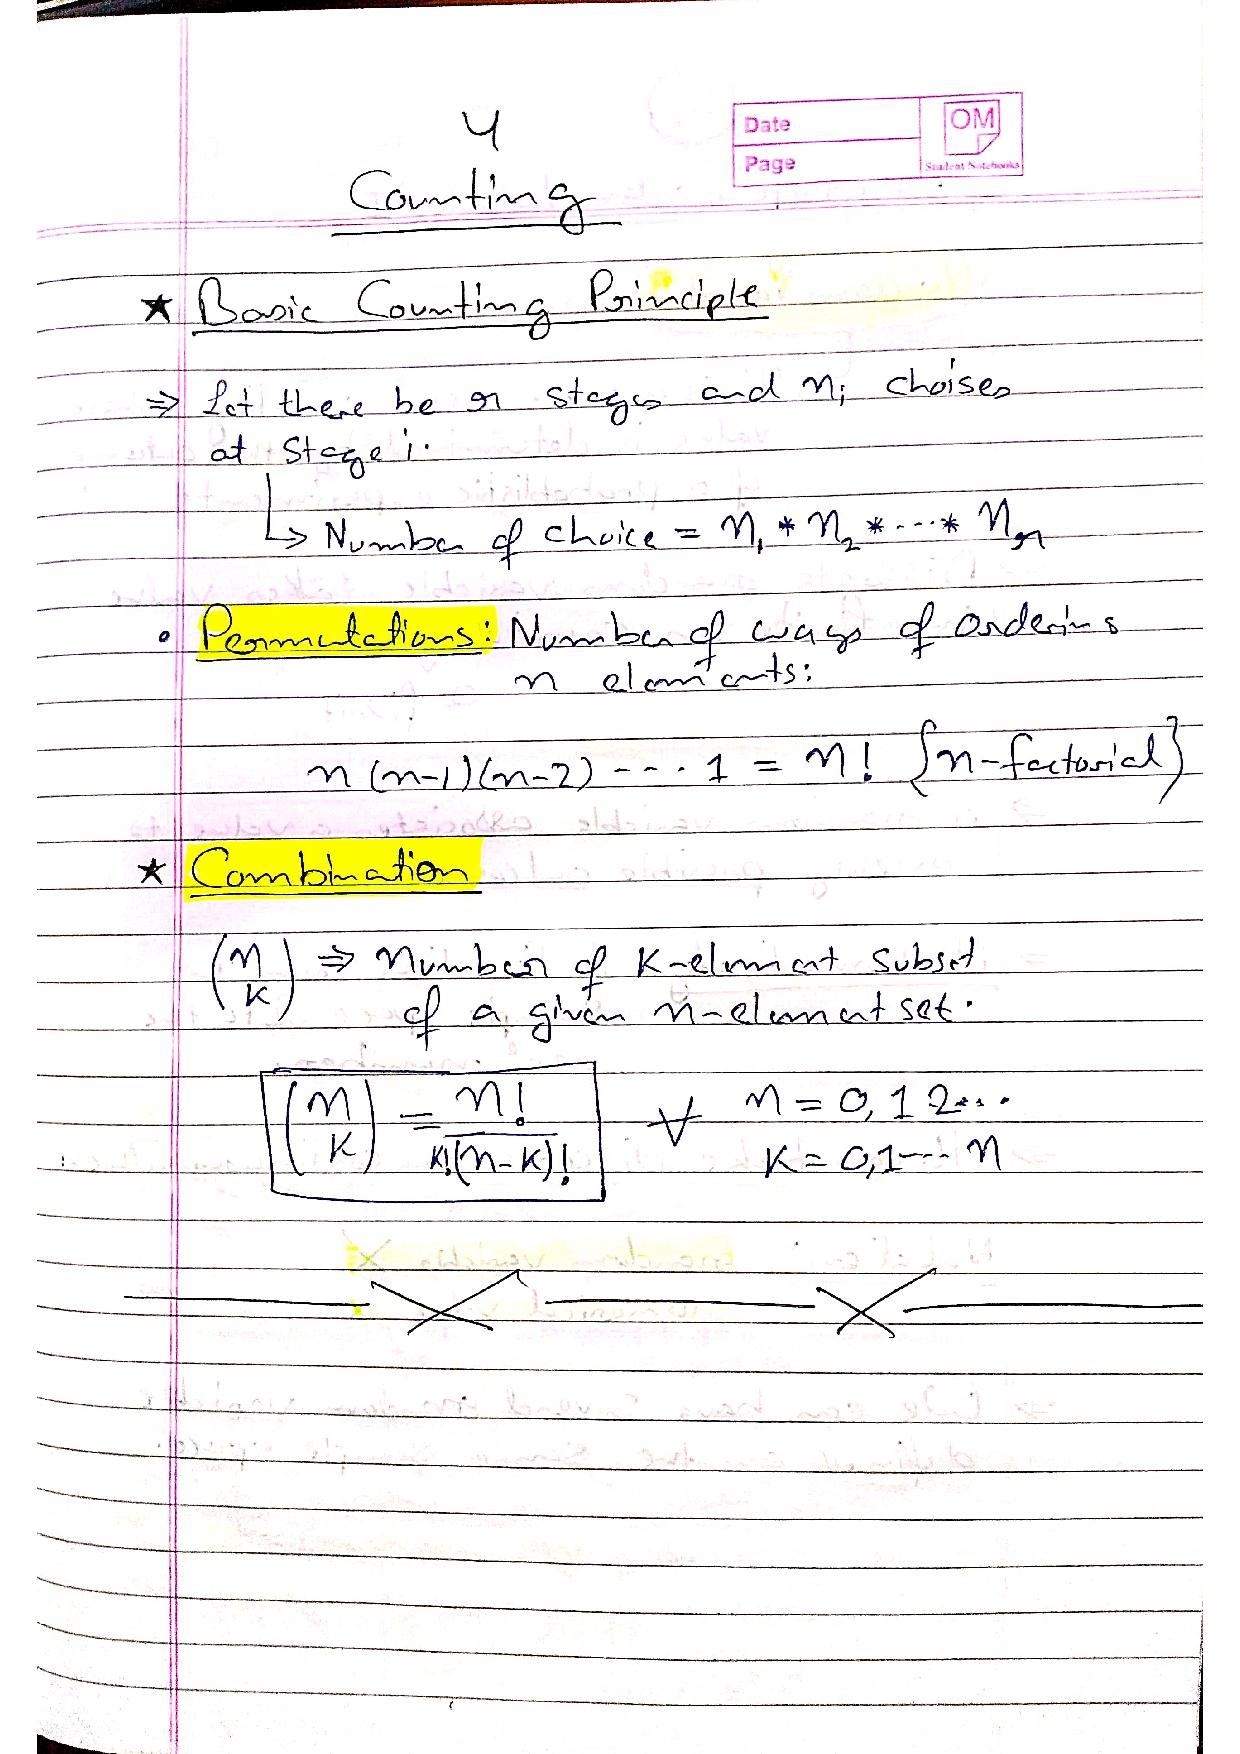 4
Date
OM
Page
Student Notebooks
Counting
★ Basic Counting Principle
⇒ Let there be r stages and nᵢ choises
at stage i.
↳ Number of choice = n₁ * n₂ * ---- * nᵣ
• Permutations: Number of ways of ordering
n elements:
n (n-1)(n-2) ---- 1 = n! {n-factorial}
★ Combination
(n k) ⇒ Number of K-element subset
of a given n-element set.
(n k) = n! / k!(n-k)! ∀ n = 0, 1 2....
K = 0,1---- n